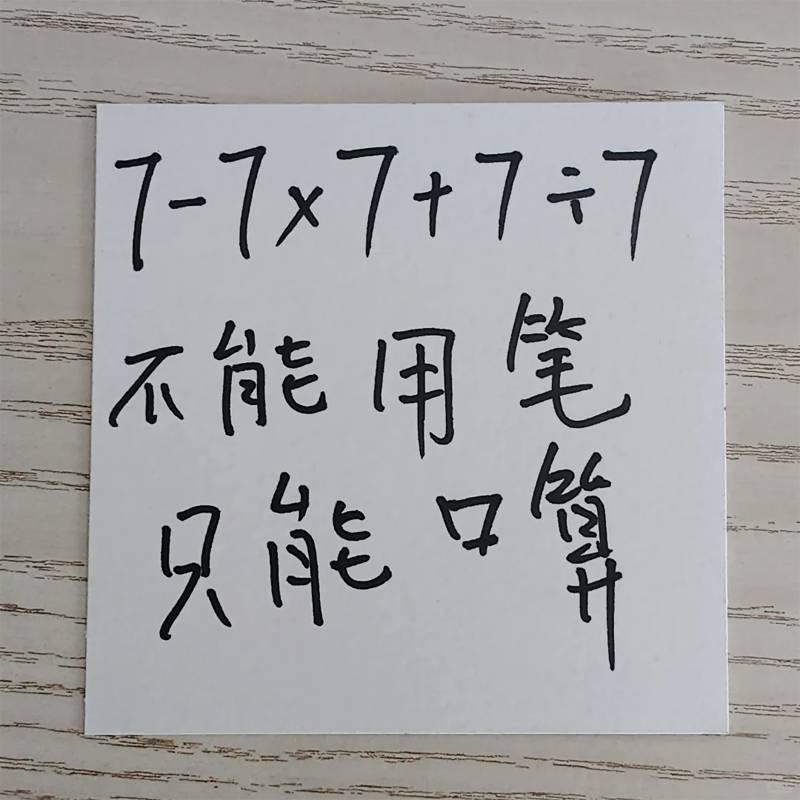 7-7×7+7÷7
不能用笔
只能口算